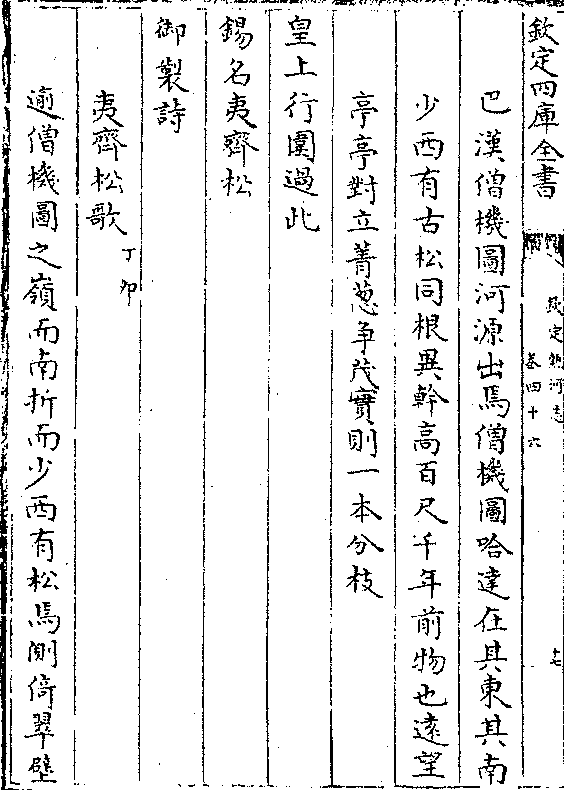 欽定四庫全書
欽定熱河志
卷四十六
十七
巴漢僧機圖河源出焉僧機圖哈達在其東其南
少西有古松同根異幹高百尺千年前物也遠望
亭亭對立菁葱爭茂實則一本分枝
皇上行圍過此
錫名夷齊松
御製詩
夷齊松歌丁卯
逾僧機圖之嶺而南折而少西有松焉側倚翠壁